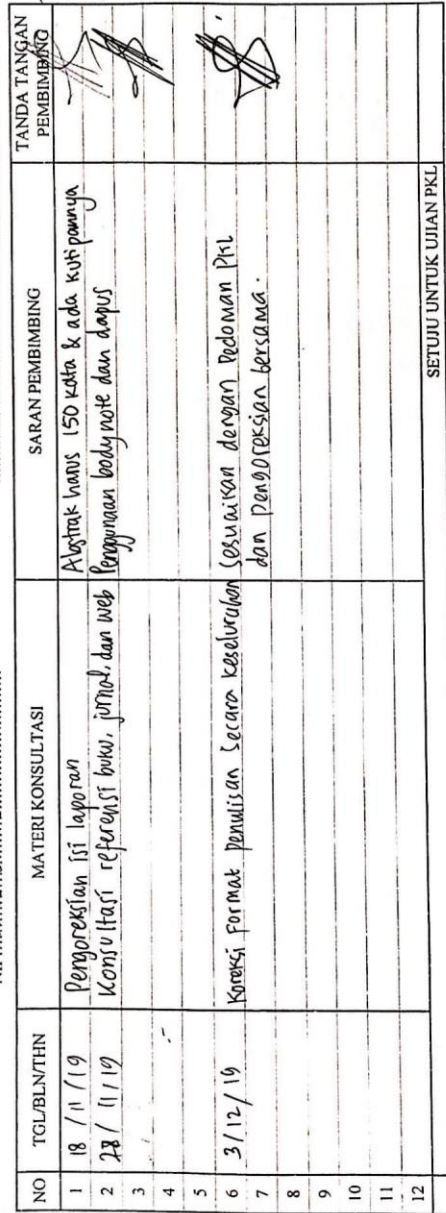 NO TGL/BLN/THN MATERI KONSULTASI SARAN PEMBIMBING TANDA TANGAN
PEMBIMBING
1 18 /11/19 Pengoreksian isi laporan Abstrak harus 150 kata & ada kutipannya
2 28/ 11/19 Konsultasi referensi buku, jurnal, dan web Penggunaan body note dan dapus
3
4
5
6 3/12/19 Koreksi format penulisan secara keseluruhan Sesuaikan dengan Pedoman PKL
7 dan pengoreksian bersama.
8
9
10
11
12
SETUJU UNTUK UJIAN PKL